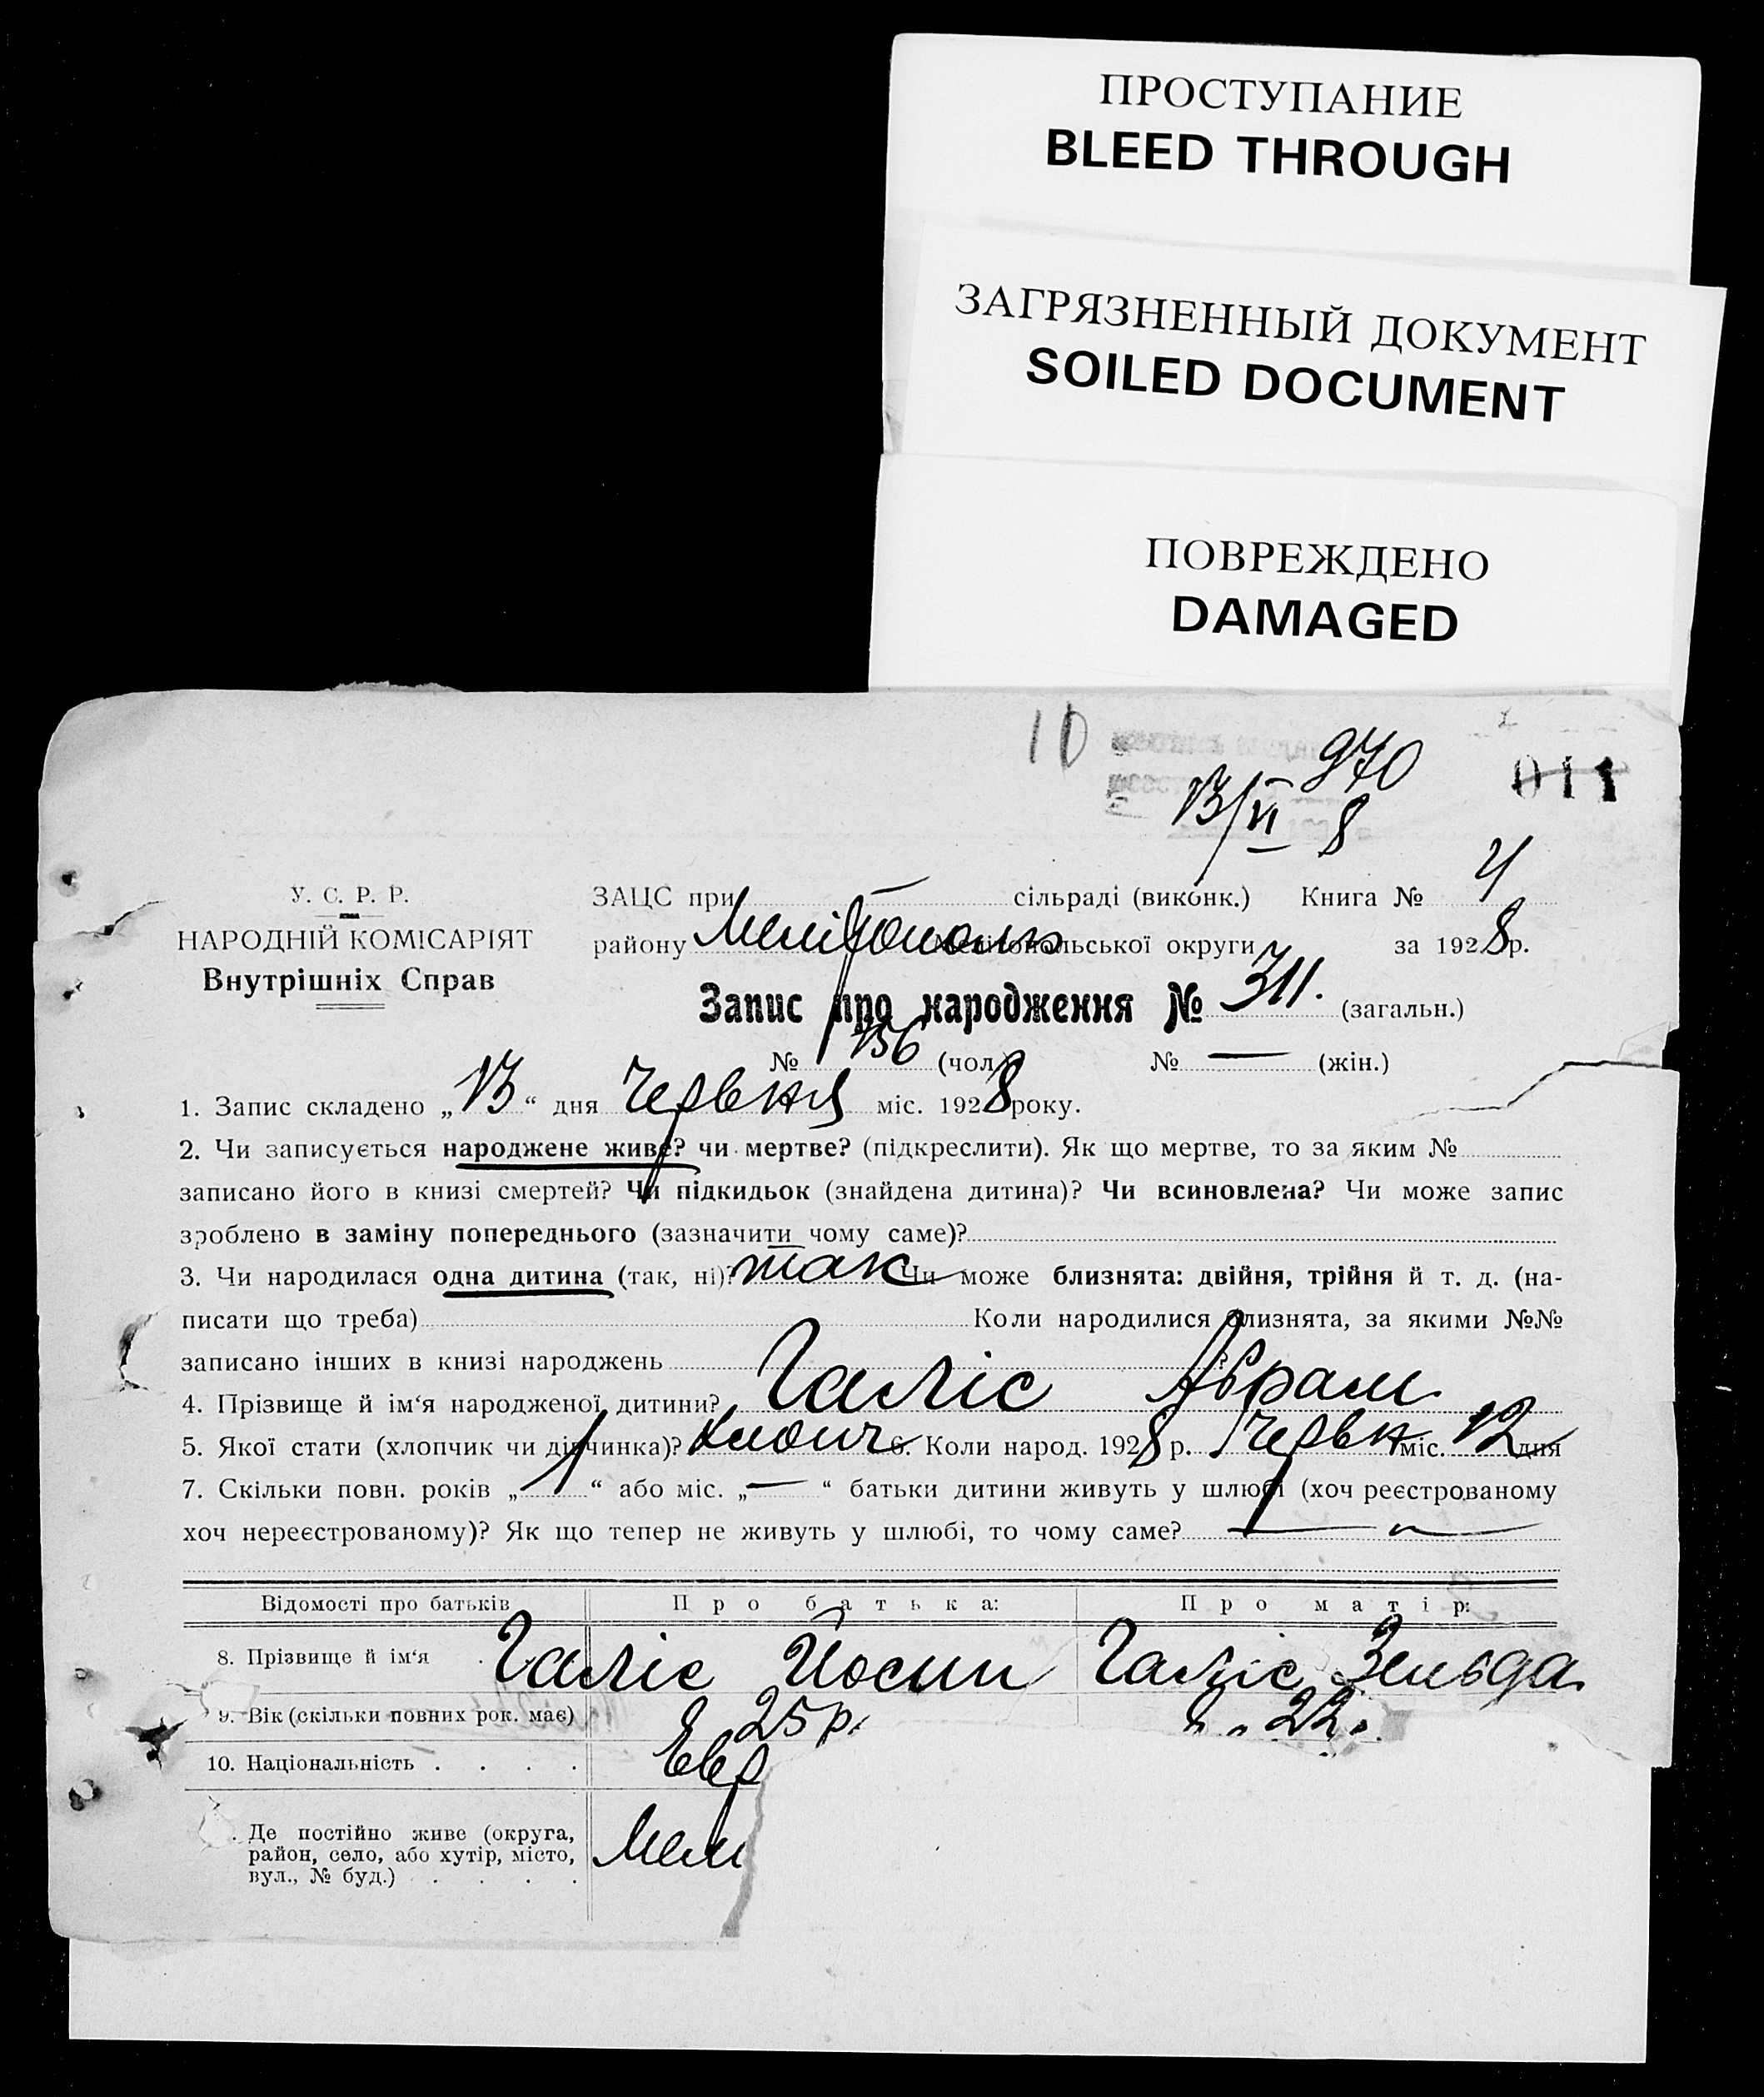 ПРОСТУПАНИЕ
BLEED THROUGH
ЗАГРЯЗНЕННЫЙ ДОКУМЕНТ
SOILED DOCUMENT
ПОВРЕЖДЕНО
DAMAGED
10
970
13/VI 8
011
У. С. Р. Р.
НАРОДНІЙ КОМІСАРІЯТ
Внутрішніх Справ
ЗАЦС при — сільраді (виконк.) Книга № 4
району Мелітополь Мелітопольської округи за 1928 р.
Запис про народження № 311. (загальн.)
№ 156 (чол.) № — (жін.)
1. Запис складено „13“ дня Червня міс. 1928 року.
2. Чи записується народжене живе? чи мертве? (підкреслити). Як що мертве, то за яким №
записано його в книзі смертей? Чи підкидьок (знайдена дитина)? Чи всиновлена? Чи може запис
зроблено в заміну попереднього (зазначити чому саме)?
3. Чи народилася одна дитина (так, ні)? так Чи може близнята: двійня, трійня й т. д. (на-
писати що треба) Коли народилися близнята, за якими №№
записано інших в книзі народжень ?
4. Прізвище й ім‘я народженої дитини? Галіс Абрам
5. Якої стати (хлопчик чи дівчинка)? Хлопч 6. Коли народ. 1928 р. Червн міс. 12 дня
7. Скільки повн. років „1“ або міс. „—“ батьки дитини живуть у шлюбі (хоч реєстрованому
хоч нереєстрованому)? Як що тепер не живуть у шлюбі, то чому саме? —
Відомості про батьків Про батька: Про матір:
8. Прізвище й ім‘я . Галіс Йосип Галіс Зельда
9. Вік (скільки повних рок. має) 25 р. 22.
10. Національність . . . . Евр
. Де постійно живе (округа,
район, село, або хутір, місто,
вул., № буд.) . . . . Мелі